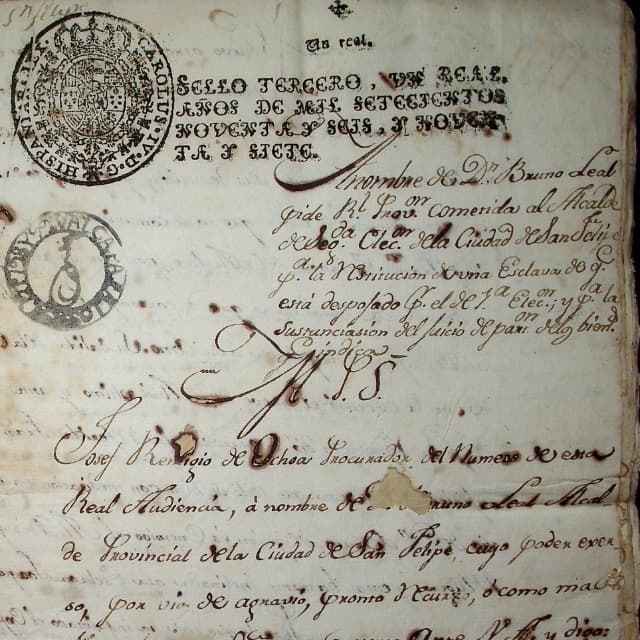 Un real.
CAROLUS IV D G HISPANIAR REX
SELLO TERCERO, UN REAL,
AÑOS DE MIL SETECIENTOS
NOVENTA Y SEIS, Y NOVEN
TA Y SIETE.
A nombre de Dn. Bruno Leal
pide Rl. Provon. cometida al Alcalde
de Segda. Elecon. de la Ciudad de San Felipe
pa. la restitucion de una Esclava de q.
está desposado p. el de 1a. Elecon.; y pa. la
sustanciasion del juicio de paron. de los biens.
M. P. S.
Josef Remigio de Ochoa Procurador del Numero de esta
Real Audiencia, à nombre de Dn. Bruno Leal Alcal
de Provincial de la Ciudad de San Felipe, cuyo poder exer
so, por via de agravio, pronto recurso, o como mas